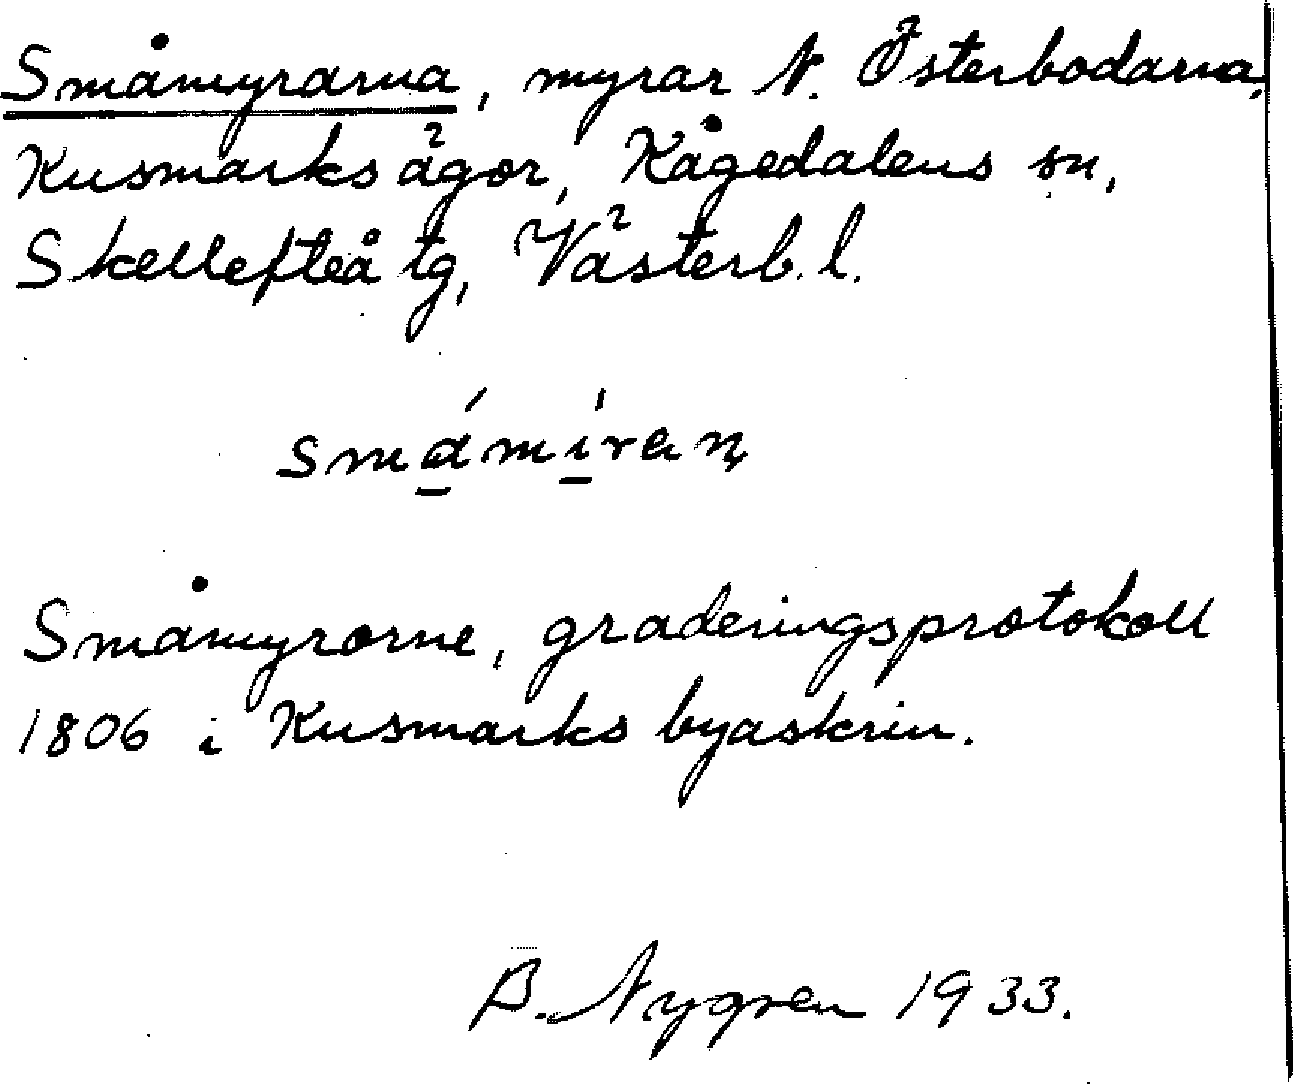 Småmyrarna, myrar N. Österbodarna,
Kusmarks ägor, Kågedalens sn,
Skellefteå tg, Västerb. l.
smá̱mí̱ran̥
Småmyrorne, graderingsprotokoll
1806 i Kusmarks byaskrin.
B. Nygren 1933.